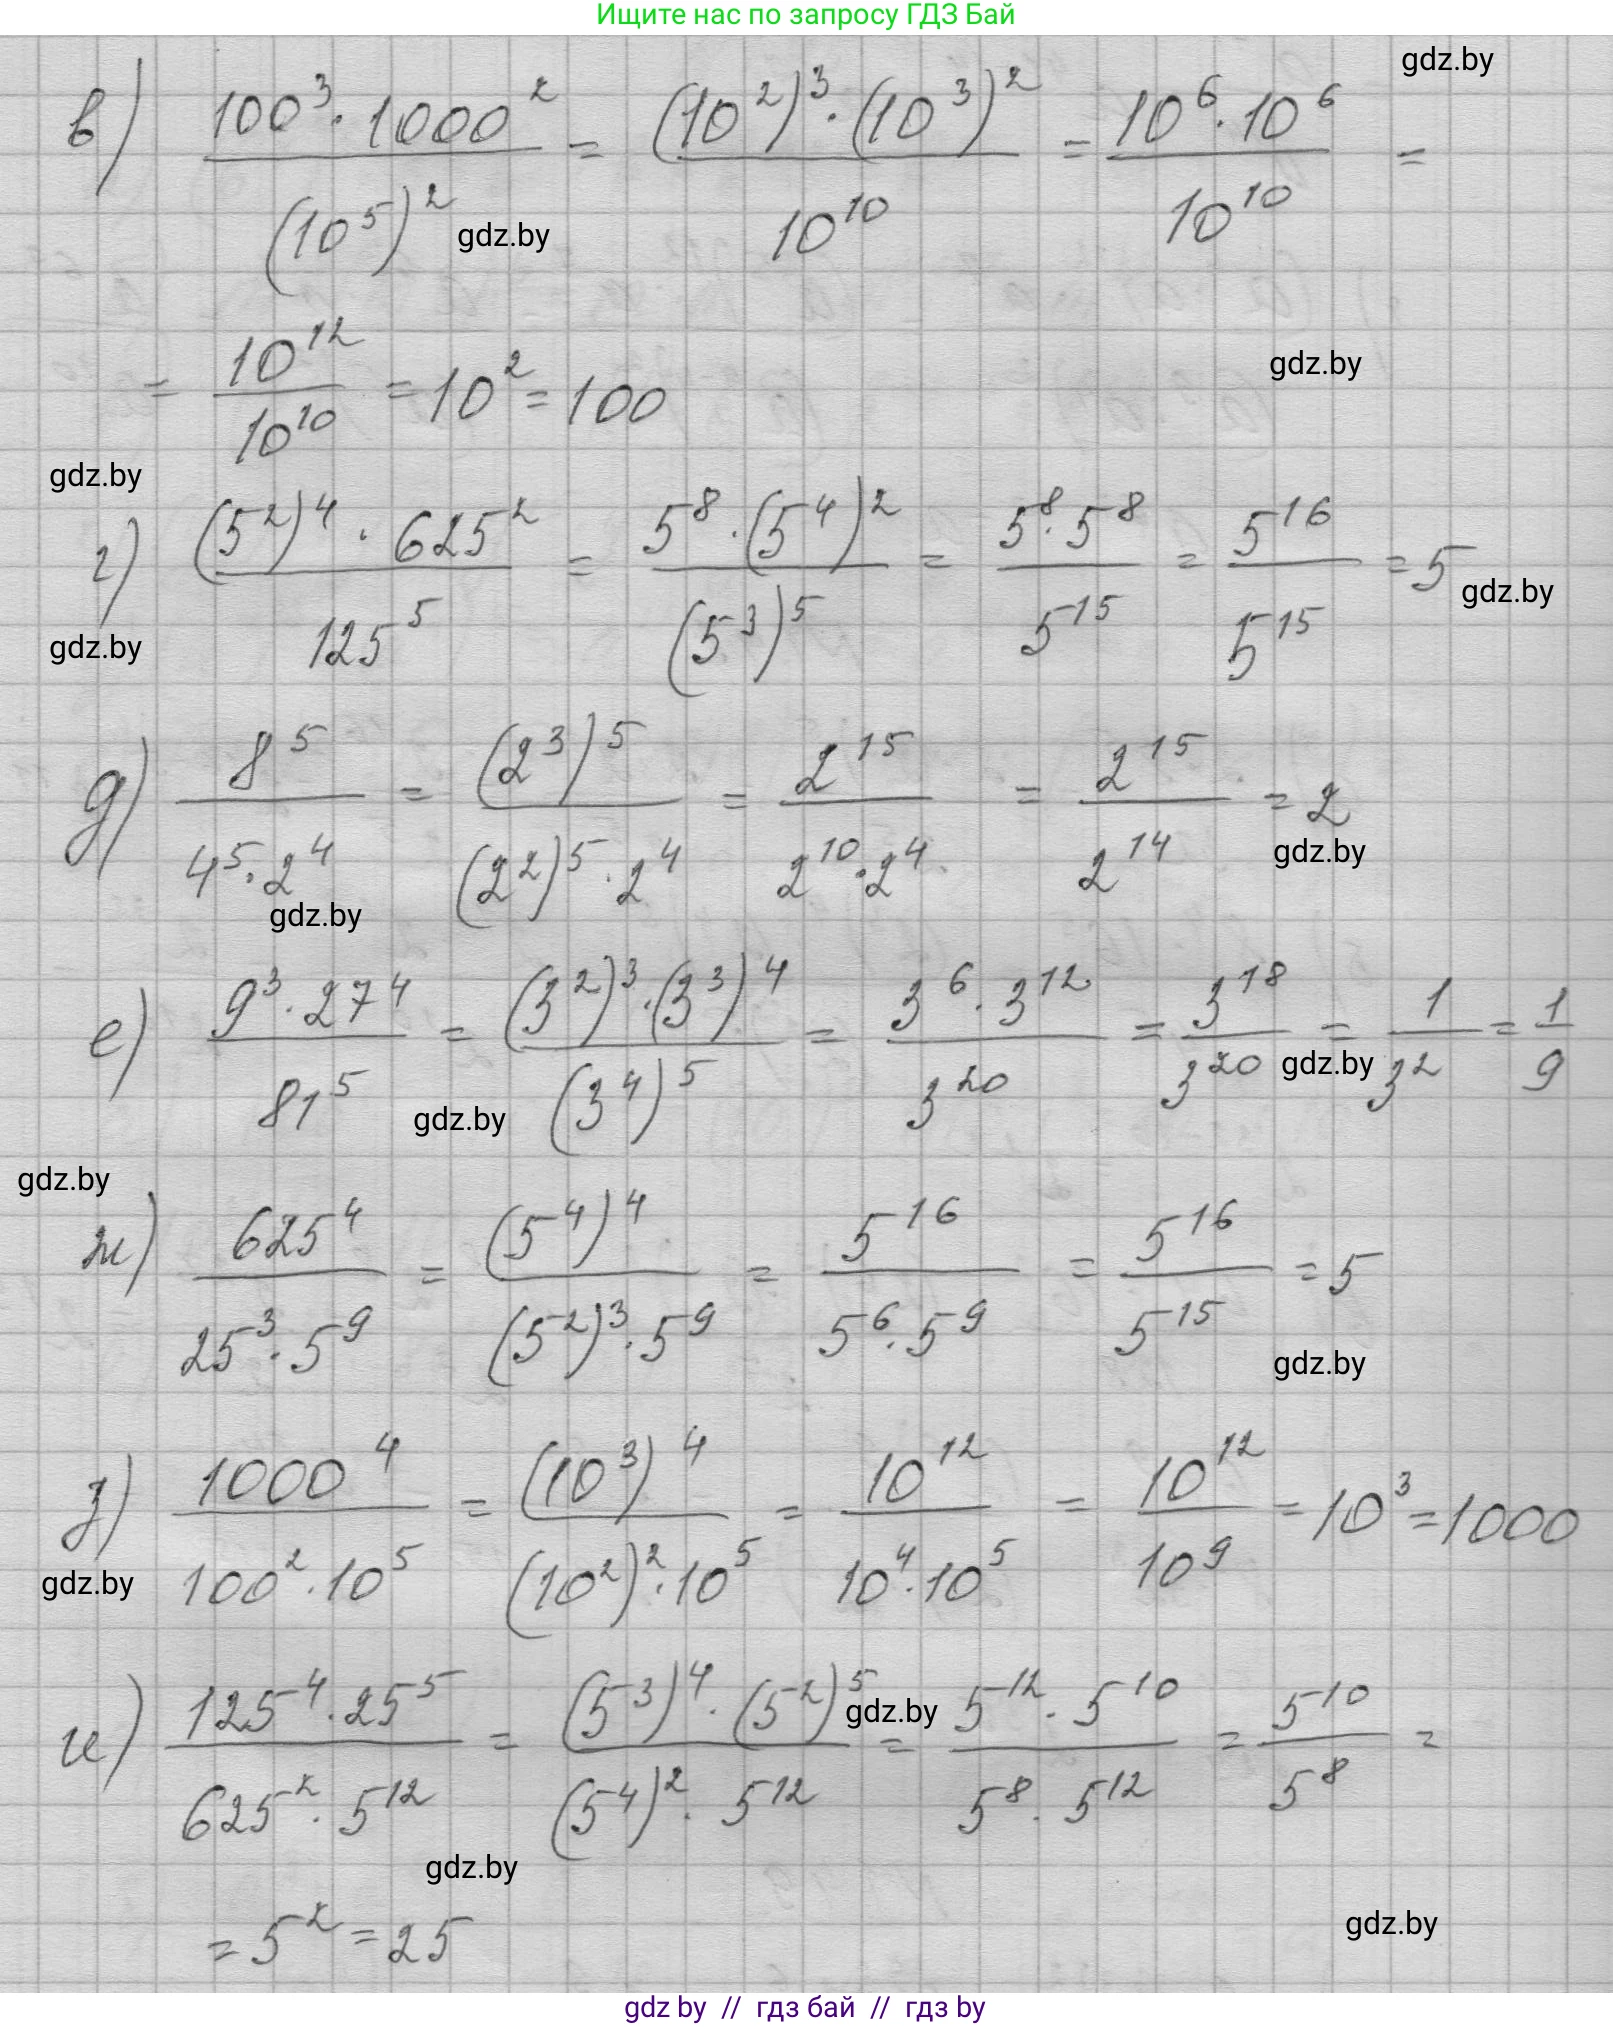 Ищите нас по запросу ГДЗ Бай
gdz.by
в) (100³ · 1000²)/((10⁵)²) = ((10²)³ · (10³)²)/(10¹⁰) = (10⁶ · 10⁶)/(10¹⁰) =
gdz.by
= 10¹²/10¹⁰ = 10² = 100
gdz.by
gdz.by
г) ((5²)⁴ · 625²)/(125⁵) = (5⁸ · (5⁴)²)/((5³)⁵) = (5⁸ · 5⁸)/(5¹⁵) = 5¹⁶/5¹⁵ = 5
gdz.by
gdz.by
д) 8⁵/(4⁵ · 2⁴) = (2³)⁵/((2²)⁵ · 2⁴) = 2¹⁵/(2¹⁰ · 2⁴) = 2¹⁵/2¹⁴ = 2
gdz.by
gdz.by
е) (9³ · 27⁴)/81⁵ = ((3²)³ · (3³)⁴)/((3⁴)⁵) = (3⁶ · 3¹²)/3²⁰ = 3¹⁸/3²⁰ = 1/3² = 1/9
gdz.by
gdz.by
gdz.by
ж) 625⁴/(25³ · 5⁹) = (5⁴)⁴/((5²)³ · 5⁹) = 5¹⁶/(5⁶ · 5⁹) = 5¹⁶/5¹⁵ = 5
gdz.by
з) 1000⁴/(100² · 10⁵) = (10³)⁴/((10²)² · 10⁵) = 10¹²/(10⁴ · 10⁵) = 10¹²/10⁹ = 10³ = 1000
gdz.by
и) (125⁴ · 25⁵)/(625² · 5¹²) = ((5³)⁴ · (5²)⁵)/((5⁴)² · 5¹²) = (5¹² · 5¹⁰)/(5⁸ · 5¹²) = 5¹⁰/5⁸ =
gdz.by
gdz.by
= 5² = 25
gdz.by
gdz by // гдз бай // гдз by